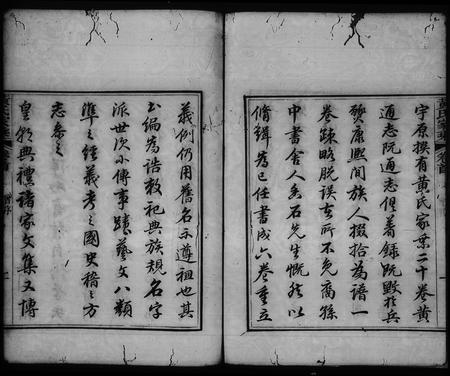 宇原撰有黄氏家乘二十卷黄
通志阮通志俱著録既毁於兵
燹康熙間族人掇拾為譜一
卷疎略脱誤在所不免裔孫
中書舍人香石先生慨然以
脩緝為已任書成六卷重立
義例仍用舊名示遵祖也其
為編為誥敕祀典族規名字
派世次小傳事蹟藝文八類
準之經義考之國史稽之方
志參之
皇朝典禮諸家文集又博